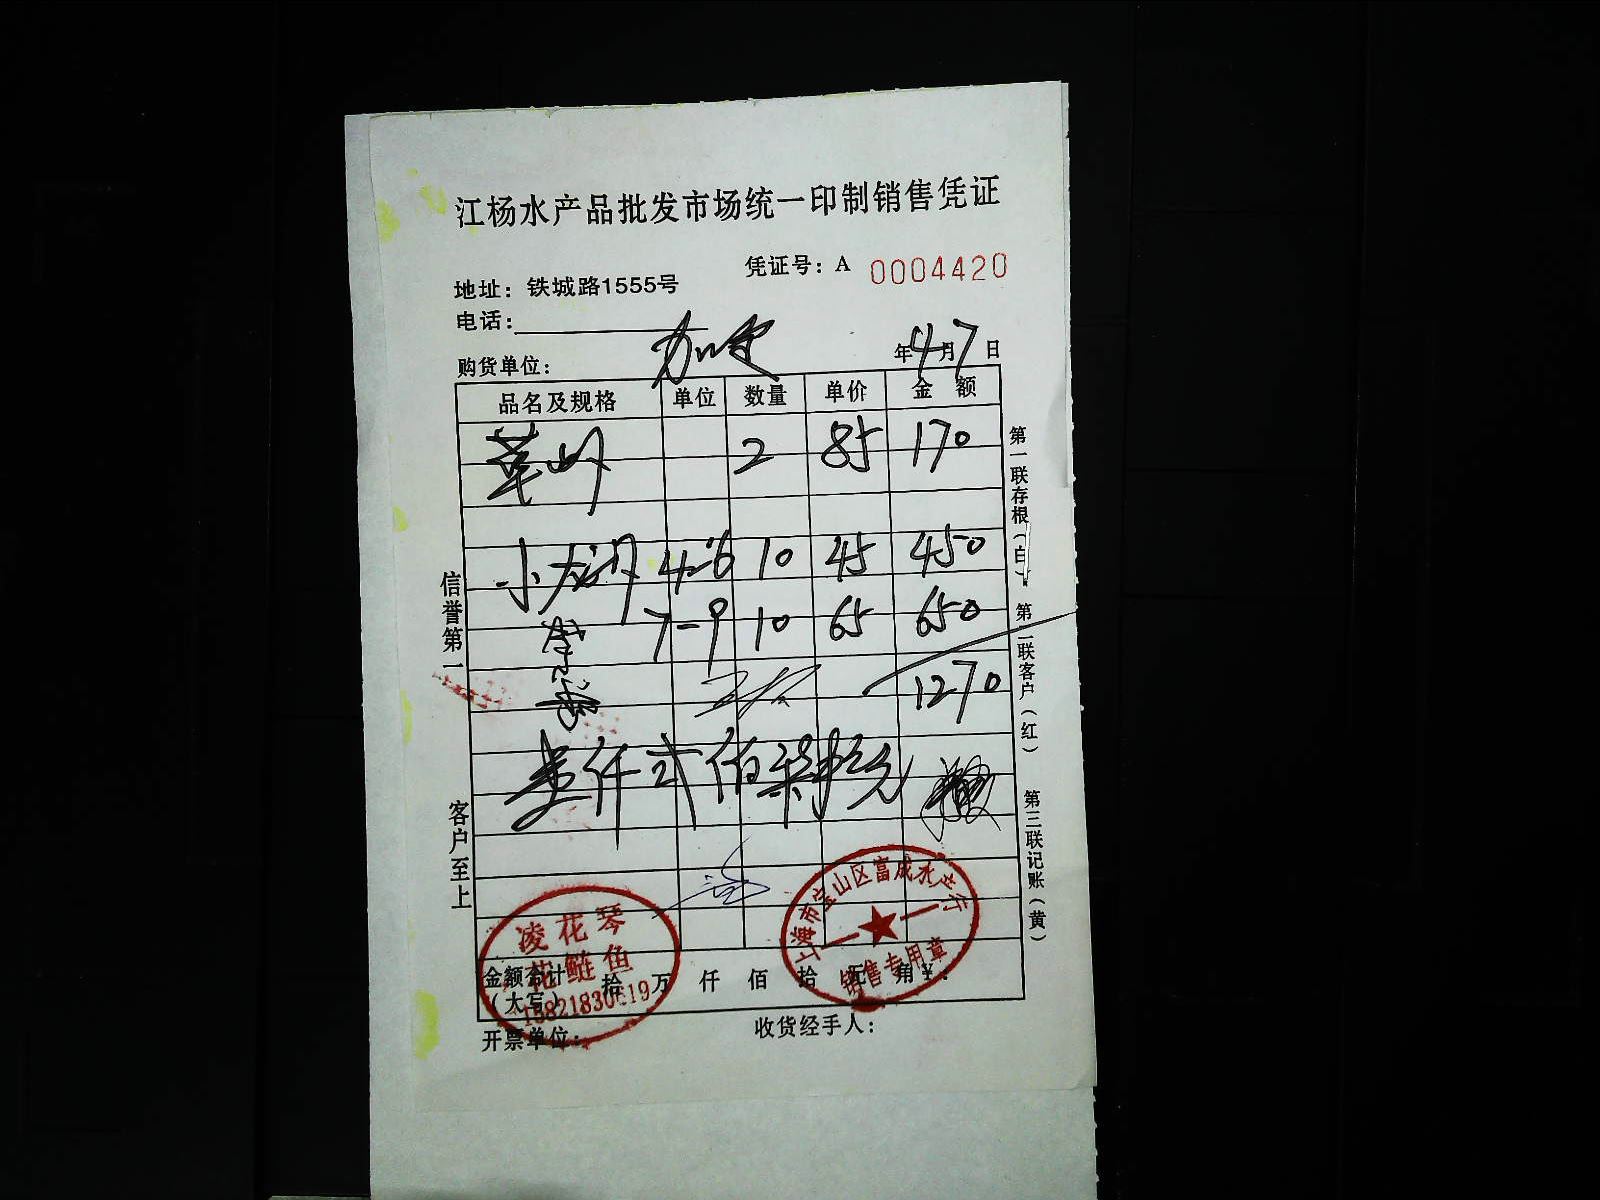 江杨水产品批发市场统一印制销售凭证
凭证号：A 0004420
地址：铁城路1555号
电话：
购货单位： 年4月7日
品名及规格 单位 数量 单价 金额
2 85 170
小龙 4-6 10 45 450
7-9 10 65 650
1270
壹仟弍佰柒拾元
信誉第一
客户至上
第一联存根（白）
第二联客户（红）
第三联记账（黄）
凌花琴
花鲢鱼
上海市宝山区富成水产行
销售专用章
金额合计（大写） 拾 万 仟 佰 拾 元 角 ¥：
开票单位：
收货经手人：